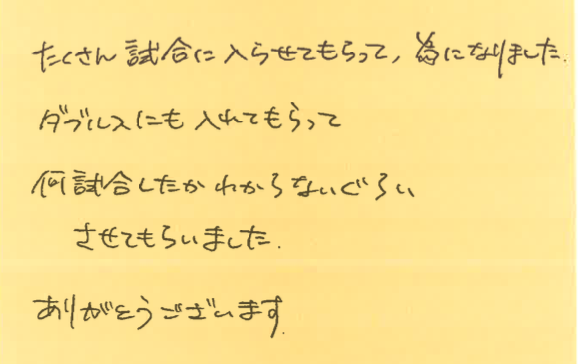 たくさん試合に入らせてもらって、為になりました.
ダブルスにも入れてもらって
何試合したかわからないぐらい
させてもらいました.
ありがとうございます.